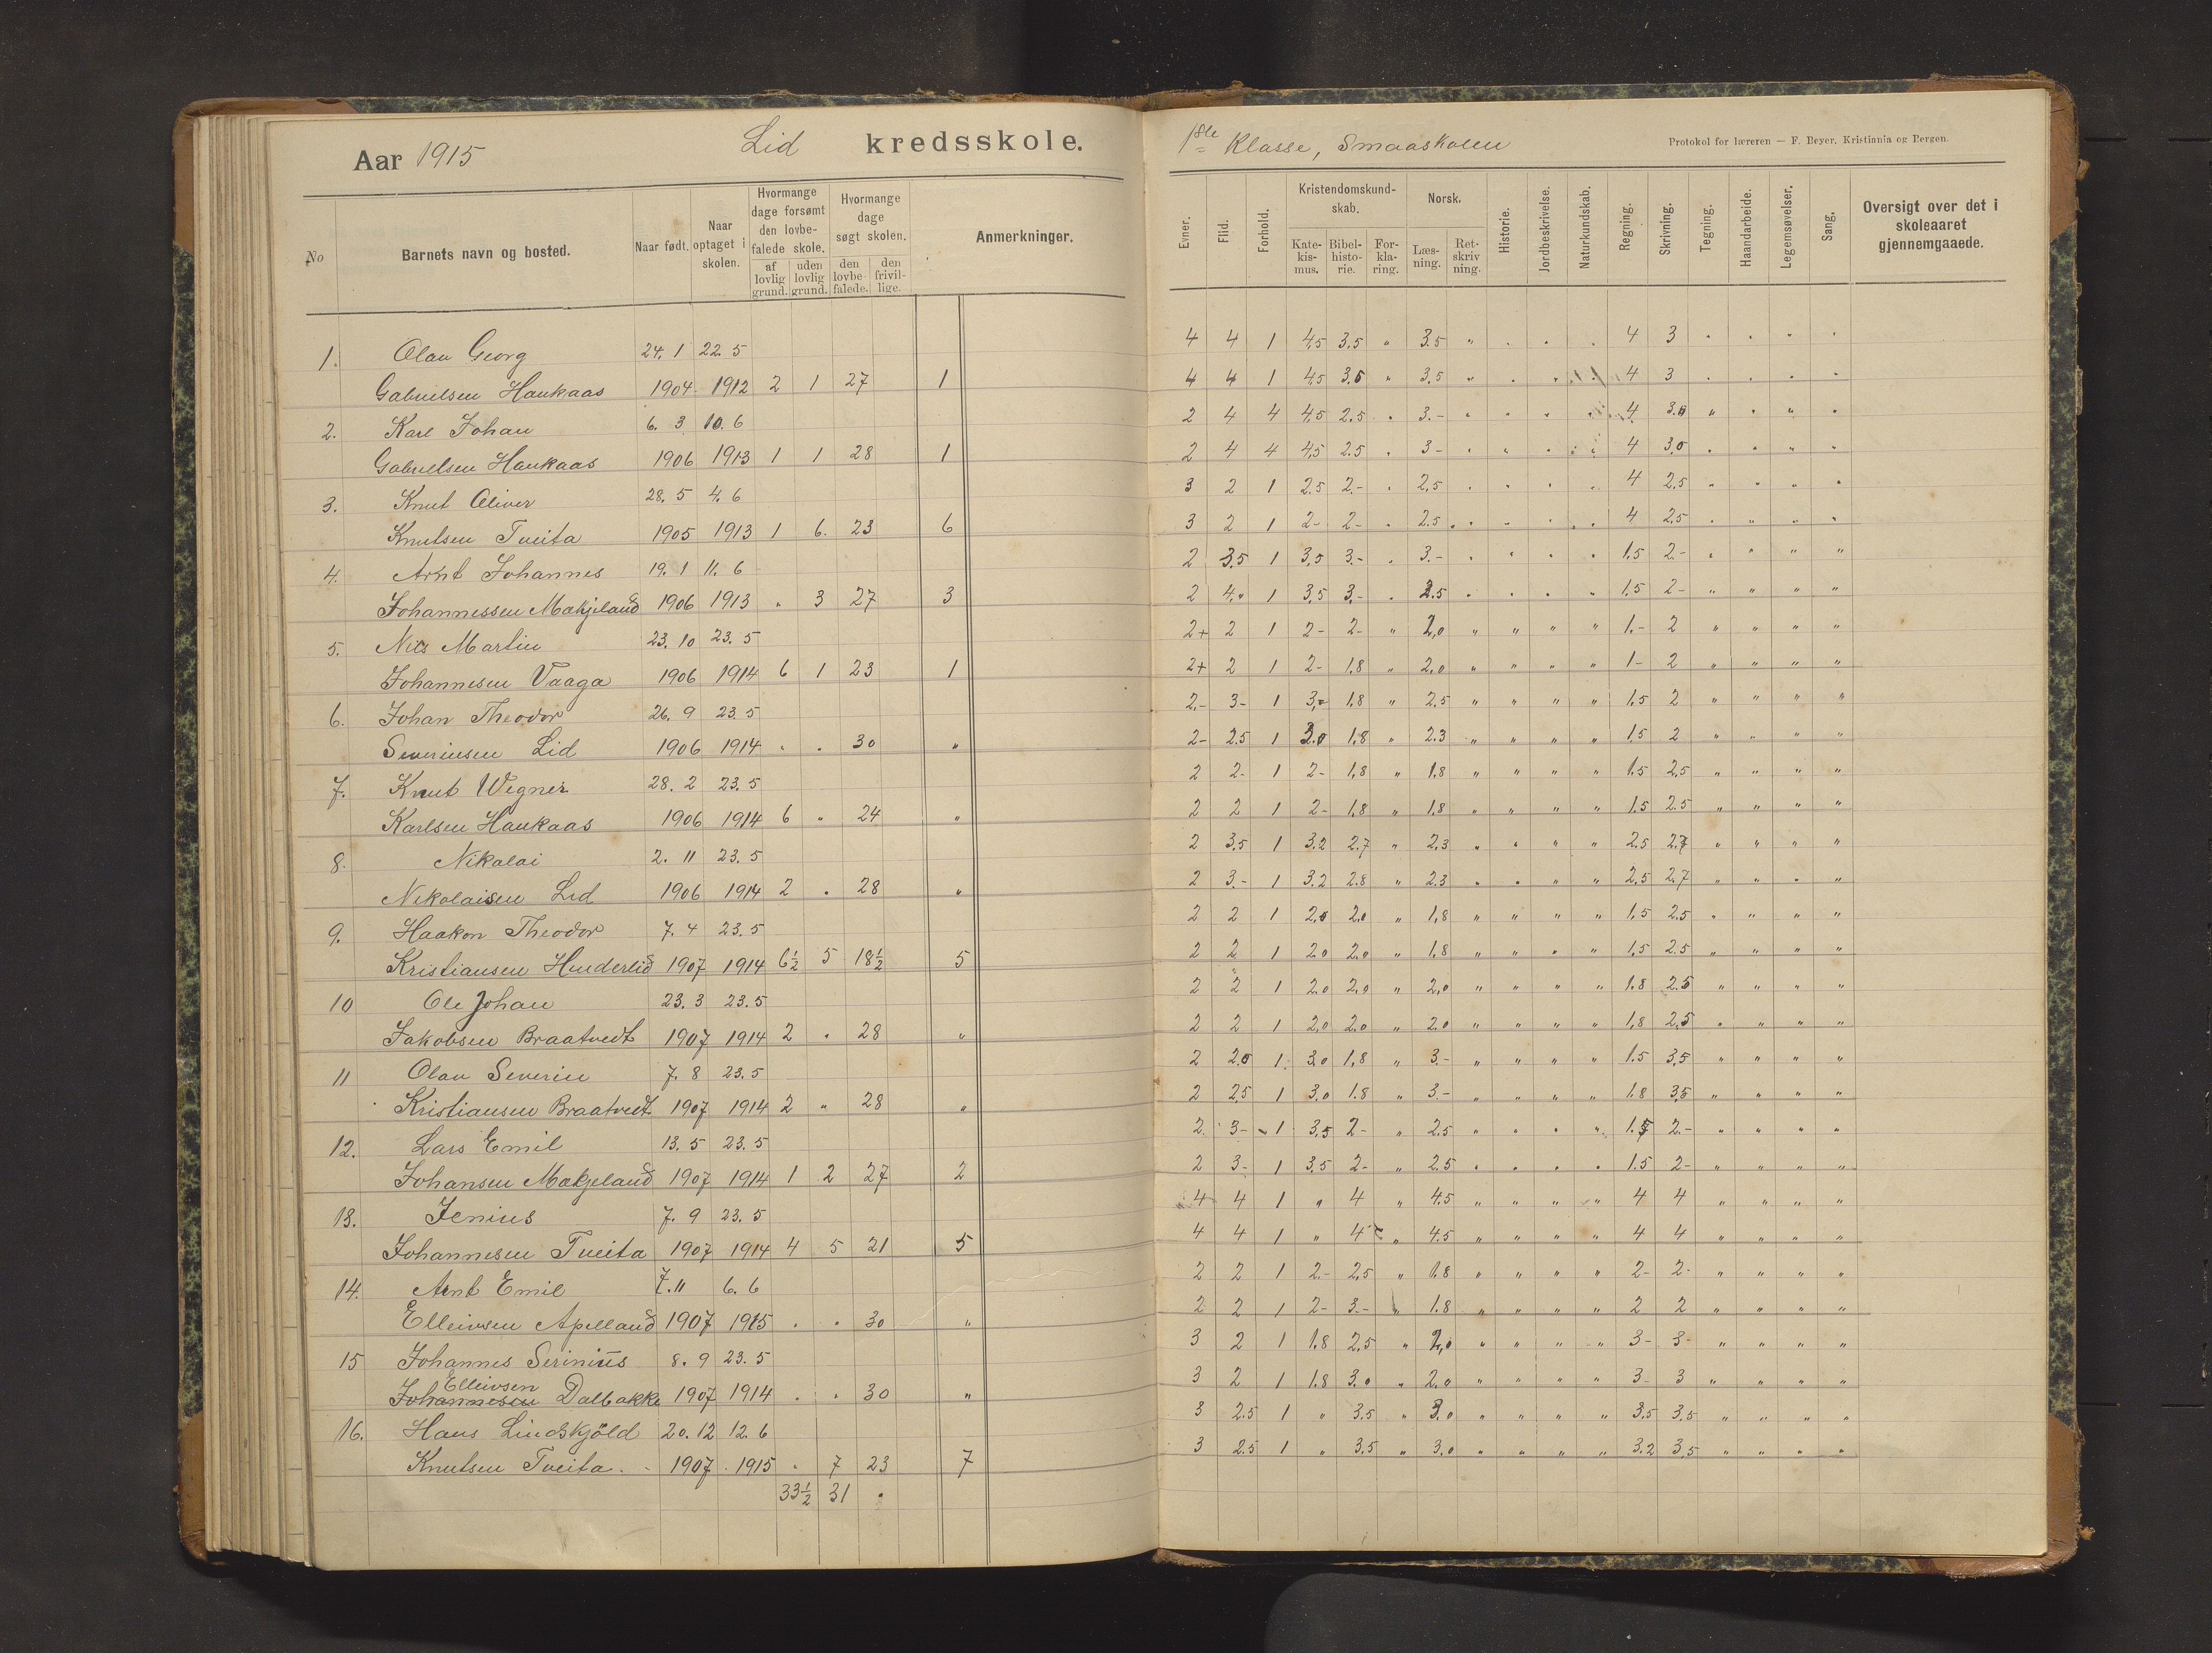 Aar 1915 Lid kredsskole.
No
Barnets navn og bosted.
Naar født.
Naar optaget i skolen.
Hvormange dage forsømt den lovbefalede skole.
af lovlig grund.
uden lovlig grund.
Hvormange dage søgt skolen.
den lovbefalede.
den frivillige.
Anmerkninger.
1. Olav Georg 24. 1 22. 5
Gabrielsen Haukaas 1904 1912 2 1 27 1
2. Karl Johan 6. 3 10. 6
Gabrielsen Haukaas 1906 1913 1 1 28 1
3. Knut Oliver 28. 5 4. 6
Knutsen Tveita 1905 1913 1 6. 23 6
4. Arnt Johannes 19. 1 11. 6
Johannessen Mækjeland 1906 1913 " 3 27 3
5. Nils Martin 23. 10 23. 5
Johannesen Vaaga 1906 1914 6 1 23 1
6. Johan Theodor 26. 9 23. 5
Severinsen Lid 1906 1914 " " 30 "
7. Knut Wegner 28. 2 23. 5
Karlsen Haukaas 1906 1914 6 " 24 "
8. Nikolai 2. 11 23. 5
Nikolaisen Lid 1906 1914 2 " 28 "
9. Haakon Theodor 7. 4 23. 5
Kristiansen Hinderlid 1907 1914 6½ 5 18½ 5
10 Ole Johan 23. 3 23. 5
Jakobsen Braatvedt 1907 1914 2 " 28 "
11 Olav Severin 7. 8 23. 5
Kristiansen Braatvedt 1907 1914 2 " 28 "
12. Lars Emil 13. 5 23. 5
Johansen Mækjeland 1907 1914 1 2 27 2
13. Jenius 7. 9 23. 5
Johannesen Tveita 1907 1914 4 5 21 5
14. Arnt Emil 7. 11 6. 6
Elleivsen Apelland 1907 1915 " " 30 "
15 Johannes Serinius 8. 9 23. 5
Elleivsen
Johannesen Dalbakke 1907 1914 " " 30 "
16. Hans Lindskjöld 20. 12 12. 6
Knutsen Tveita. 1907 1915 " 7 23 7
33½ 31 "
1ste Klasse, Smaaskolen
Protokol for læreren — F. Beyer, Kristiania og Bergen.
Evner.
Flid.
Forhold.
Kristendomskundskab.
Katekismus.
Bibelhistorie.
Forklaring.
Norsk.
Læsning.
Retskrivning.
Historie.
Jordbeskrivelse.
Naturkundskab.
Regning.
Skrivning.
Tegning.
Haandarbeide.
Legemsøvelser.
Sang.
Oversigt over det i skoleaaret gjennemgaaede.
4 4 1 4,5 3,5 " 3.5 " " " " 4 3 " " " "
4 4 1 4,5 3,5 " 3,5 " " " " 4 3 " " " "
2 4 4 4,5 2.5 " 3.- " " " " 4 3.0 " " " "
2 4 4 4,5 2.5 " 3- " " " " 4 3,0 " " " "
3 2 1 2.5 2.- " 2,5 " " " " 4 2,5 " " " "
3 2 1 2- 2- " 2.5 " " " " 4 2,5 " " " "
2 3,5 1 3,5 3.- " 3.- " " " " 1,5 2.- " " " "
2 4.0 1 3,5 3,- " 2.5 " " " " 1,5 2- " " " "
2+ 2 1 2- 2- " 2,0 " " " " 1.- 2 " " " "
2+ 2 1 2- 1,8 " 2,0 " " " " 1- 2 " " " "
2,- 3- 1 3,- 1,8 " 2,5 " " " " 1,5 2 " " " "
2- 2.5 1 3.0 1,8 " 2.3 " " " " 1,5 2 " " " "
2 2- 1 2- 1,8 " 1,8 " " " " 1.5 2,5 " " " "
2 2 1 2- 1,8 " 1,8 " " " " 1.5 2.5 " " " "
2 3,5 1 3.2 2.7 " 2,3 " " " " 2.5 2.7 " " " "
2 3.- 1 3.2 2.8 " 2.3 " " " " 2,5 2.7 " " " "
2 2 1 2,0 2,0 " 1,8 " " " " 1,5 2.5 " " " "
2 2 1 2.0 2,0 " 1,8 " " " " 1,5 2.5 " " " "
2 2 1 2.0 2,0 " 2,0 " " " " 1.8 2.5 " " " "
2 2 1 2,0 2.0 " 2.0 " " " " 1,8 2,5 " " " "
2 2.0 1 3.0 1,8 " 3.- " " " " 1.5 3,5 " " " "
2 2,5 1 3,0 1.8 " 3.- " " " " 1.8 3,5 " " " "
2 3- 1 3,5 2- " 2.5 " " " " 1.5 2.- " " " "
2 3- 1 3,5 2- " 2.5 " " " " 1.5 2- " " " "
4 4 1 " 4 " 4.5 " " " " 4 4 " " " "
4 4 1 " 4 " 4.5 " " " " 4 4 " " " "
2 2 1 2.- 2,5 " 1.8 " " " " 2- 2- " " " "
2 2 1 2- 3.- " 1.8 " " " " 2 2 " " " "
3 2 1 1.8 2,5 " 2,0 " " " " 3- 3- " " " "
3 2 1 1.8 3.0 " 2.0 " " " " 3- 3 " " " "
3 2.5 1 " 3,5 " 3.0 " " " " 3,5 3,5 " " " "
3 2.5 1 " 3,5 " 3,0 " " " " 3.2 3,5 " " " "